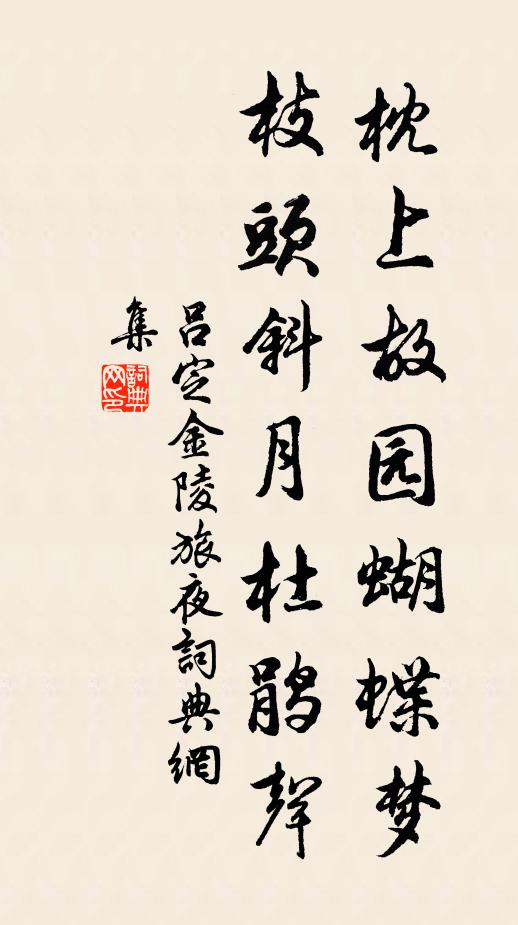 枕上故园蝴蝶梦
枝頭斜月杜鹃聲
吕定金陵旅夜詞典網
集
詞典
网印